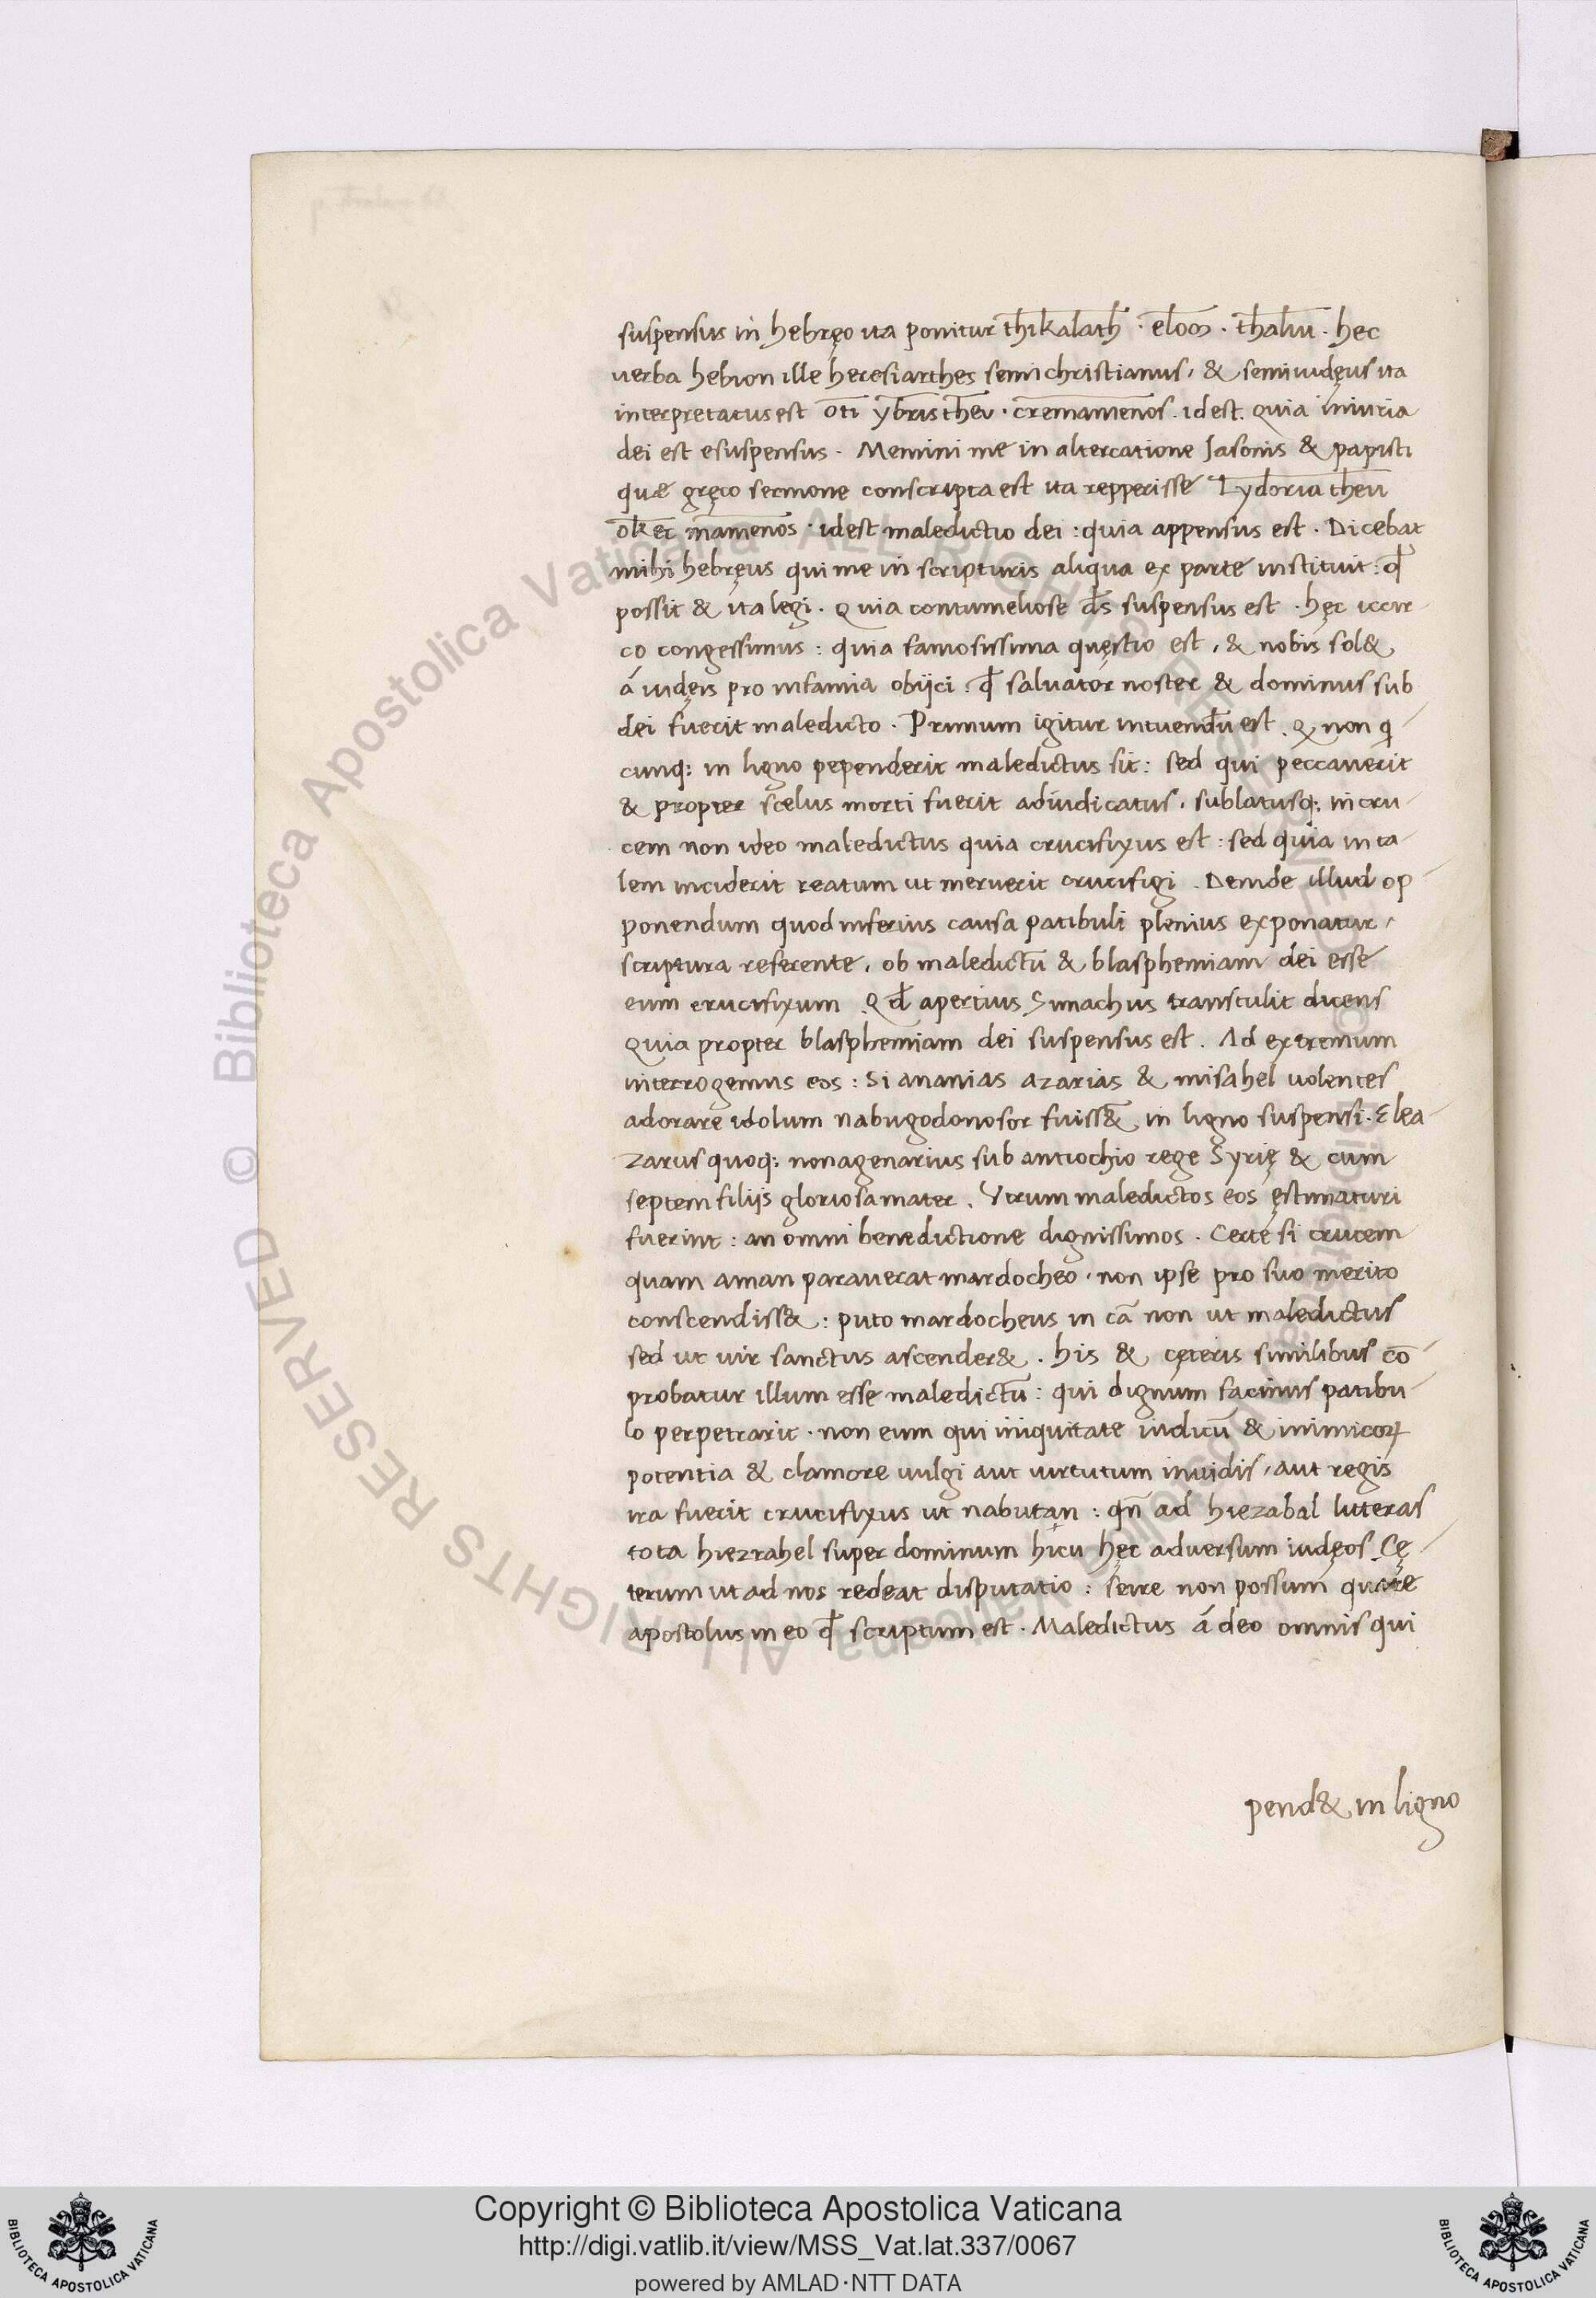 suspensus in hebręo ita ponitur thikalath · eloos · thaluu · hec
uerba hebion ille heresiarthes semichristianus, & semiiudęus ita
interpretatus est oti ybris theu · cremamenos · idest. Quia iniuria
dei est esuspensus · Memini me in altercatione Jasonis & papisti
quæ gręco sermone conscripta est ita repperisse Lydoria theu
ok et mamenos · idest maledictio dei : quia appensus est · Dicebat
mihi hebręus qui me in scripturis aliqua ex parte instituit : qđ
possit & ita legi · Quia contumeliose d̄s suspensus est · hęc iccir-
co congessimus : quia famosissima quęstio est, & nobis sol&
á iudęis pro infamia obijci : qđ saluator noster & dominus sub
dei fuerit maledicto · Primum igitur intuendū est · Q non q-
cunq; in ligno pependerit maledictus sit : sed qui peccauerit
& propter scelus morti fuerit adiudicatus, sublatusq; in cru-
cem non ideo maledictus quia crucifixus est : sed quia in ta-
lem inciderit reatum ut meruerit crucifigi · Deinde illud op-
ponendum quod inferius causa patibuli plenius exponatur,
scriptura referente, ob maledictū & blasphemiam dei esse
eum crucifixum · Qđ apertius Simachus transtulit dicens
Quia propter blasphemiam dei suspensus est · Ad extremum
interrogemus eos : Si ananias azarias & misahel uolentes
adorare idolum nabugodonosor fuiss&̄ in ligno suspensi · Elea-
zarus quoq; nonagenarius sub antiochio rege Syrię & cum
septem filijs gloriosa mater · Vtrum maledictos eos ęstimaturi
fuerint : an omni benedictione dignissimos · Certe si crucem
quam aman parauerat mardocheo, non ipse pro suo merito
conscendiss& : puto mardocheus in eā non ut maledictus
sed ut uir sanctus ascender& · his & cęteris similibus cō-
probatur illum esse maledictū : qui dignum facinus patibu-
lo perpetrarit · non eum qui iniquitate iudicū & inimicoꝝ
potentia & clamore uulgi aut uirtutum inuidis, aut regis
ira fuerit crucifixus ut nabutan : qn̄ ad hiezabal litteras
tota hiezrahel super dominum hicu hęc aduersum iudęos · Cę-
terum ut ad nos redeat disputatio : scire non possum quare
apostolus in eo qđ scriptum est · Maledictus á deo omnis qui
pend& in ligno
Copyright © Biblioteca Apostolica Vaticana
http://digi.vatlib.it/view/MSS_Vat.lat.337/0067
powered by AMLAD·NTT DATA